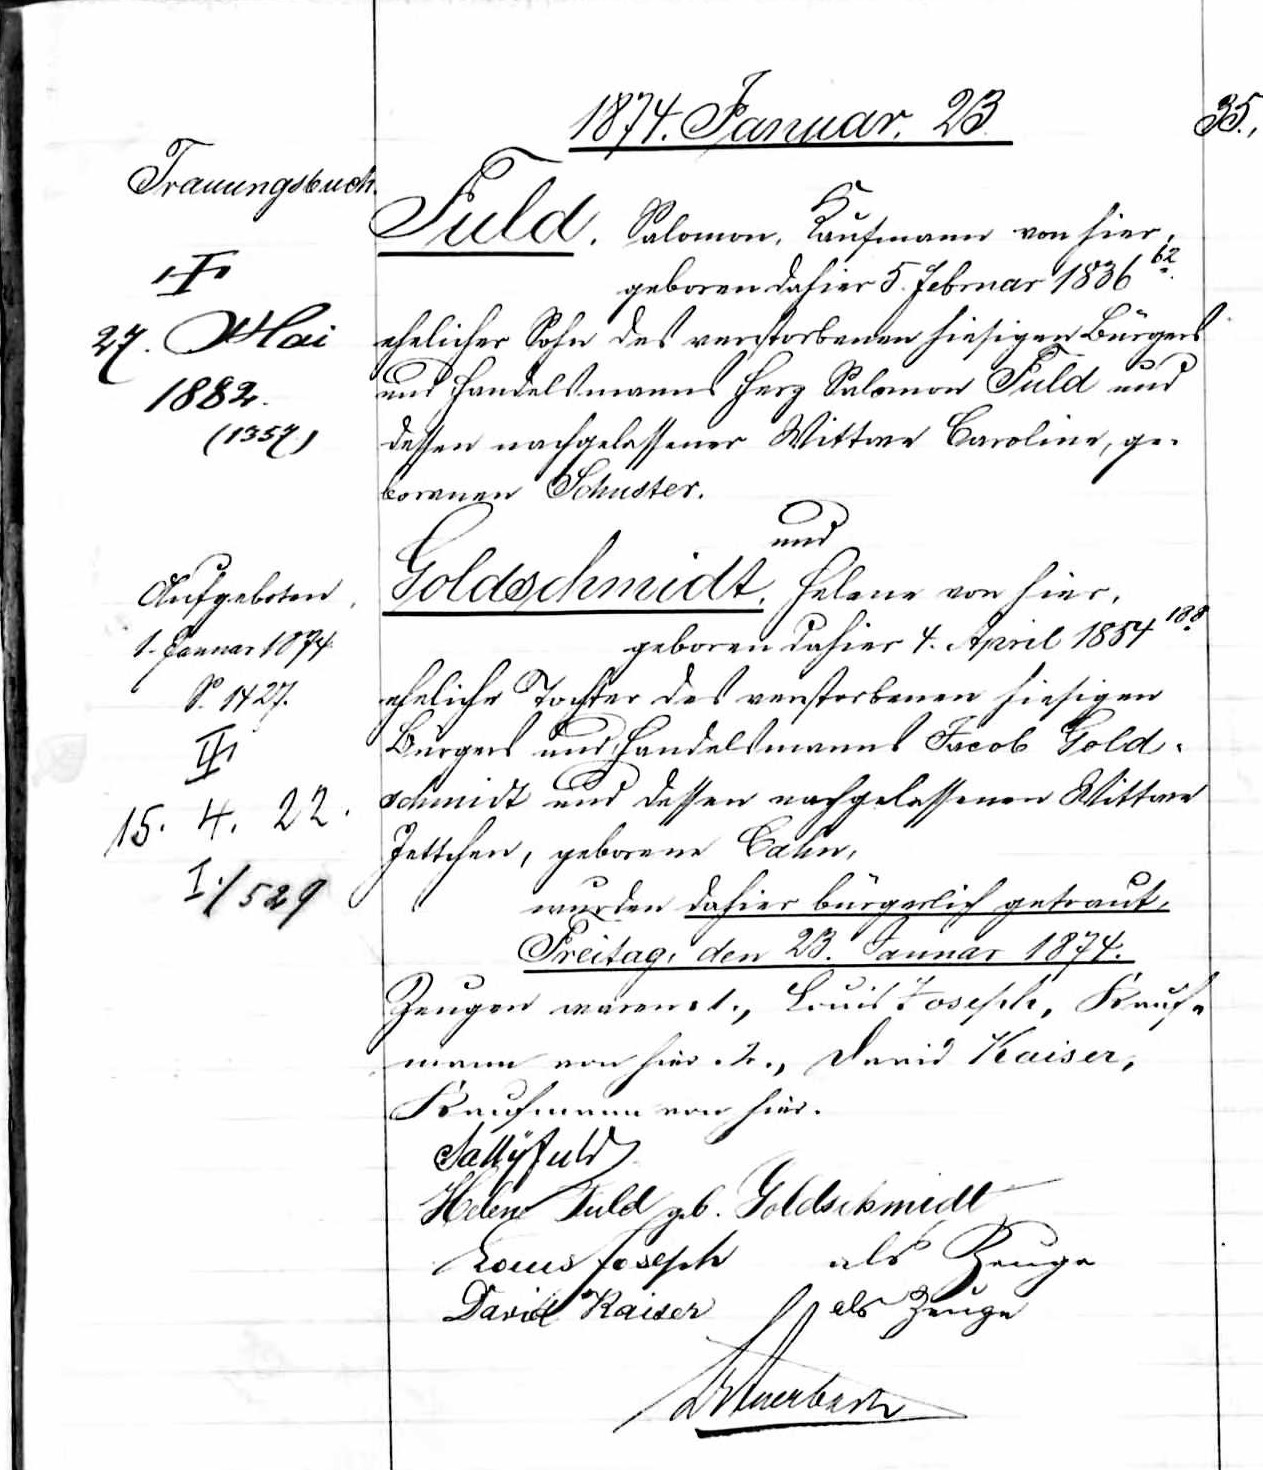 1874. Januar. 23.
35.,
Trauungsbuch.
Fuld. Salomon, Kaufmann von hier,
geboren dahier 5. Februar 1836 62.
ehelicher Sohn des verstorbenen hiesigen Bürgers
und Handelsmanns Herz Salomon Fuld und
dessen nachgelassener Wittwe Caroline, ge-
borenen Schuster.
und
Goldschmidt, Helene von hier,
geboren dahier 4. April 1854 188.
eheliche Tochter des verstorbenen hiesigen
Bürgers und Handelsmanns Jacob Gold-
schmidt und dessen nachgelassenen Wittwe
Jettchen, geborene Cahn,
wurden dahier bürgerlich getraut,
Freitag, den 23. Januar 1874.
Zeugen waren: 1., Louis Joseph, Kauf-
mann von hier. 2., David Kaiser,
Kaufmann von hier.
Sally Fuld
Helene Fuld geb. Goldschmidt
Louis Joseph als Zeuge
David Kaiser als Zeuge
Auerbach
✝ I
27. Mai
1882.
(1357)
Aufgeboten
1. Januar 1874
S. 1427.
✝ II
15. 4. 22.
I./529